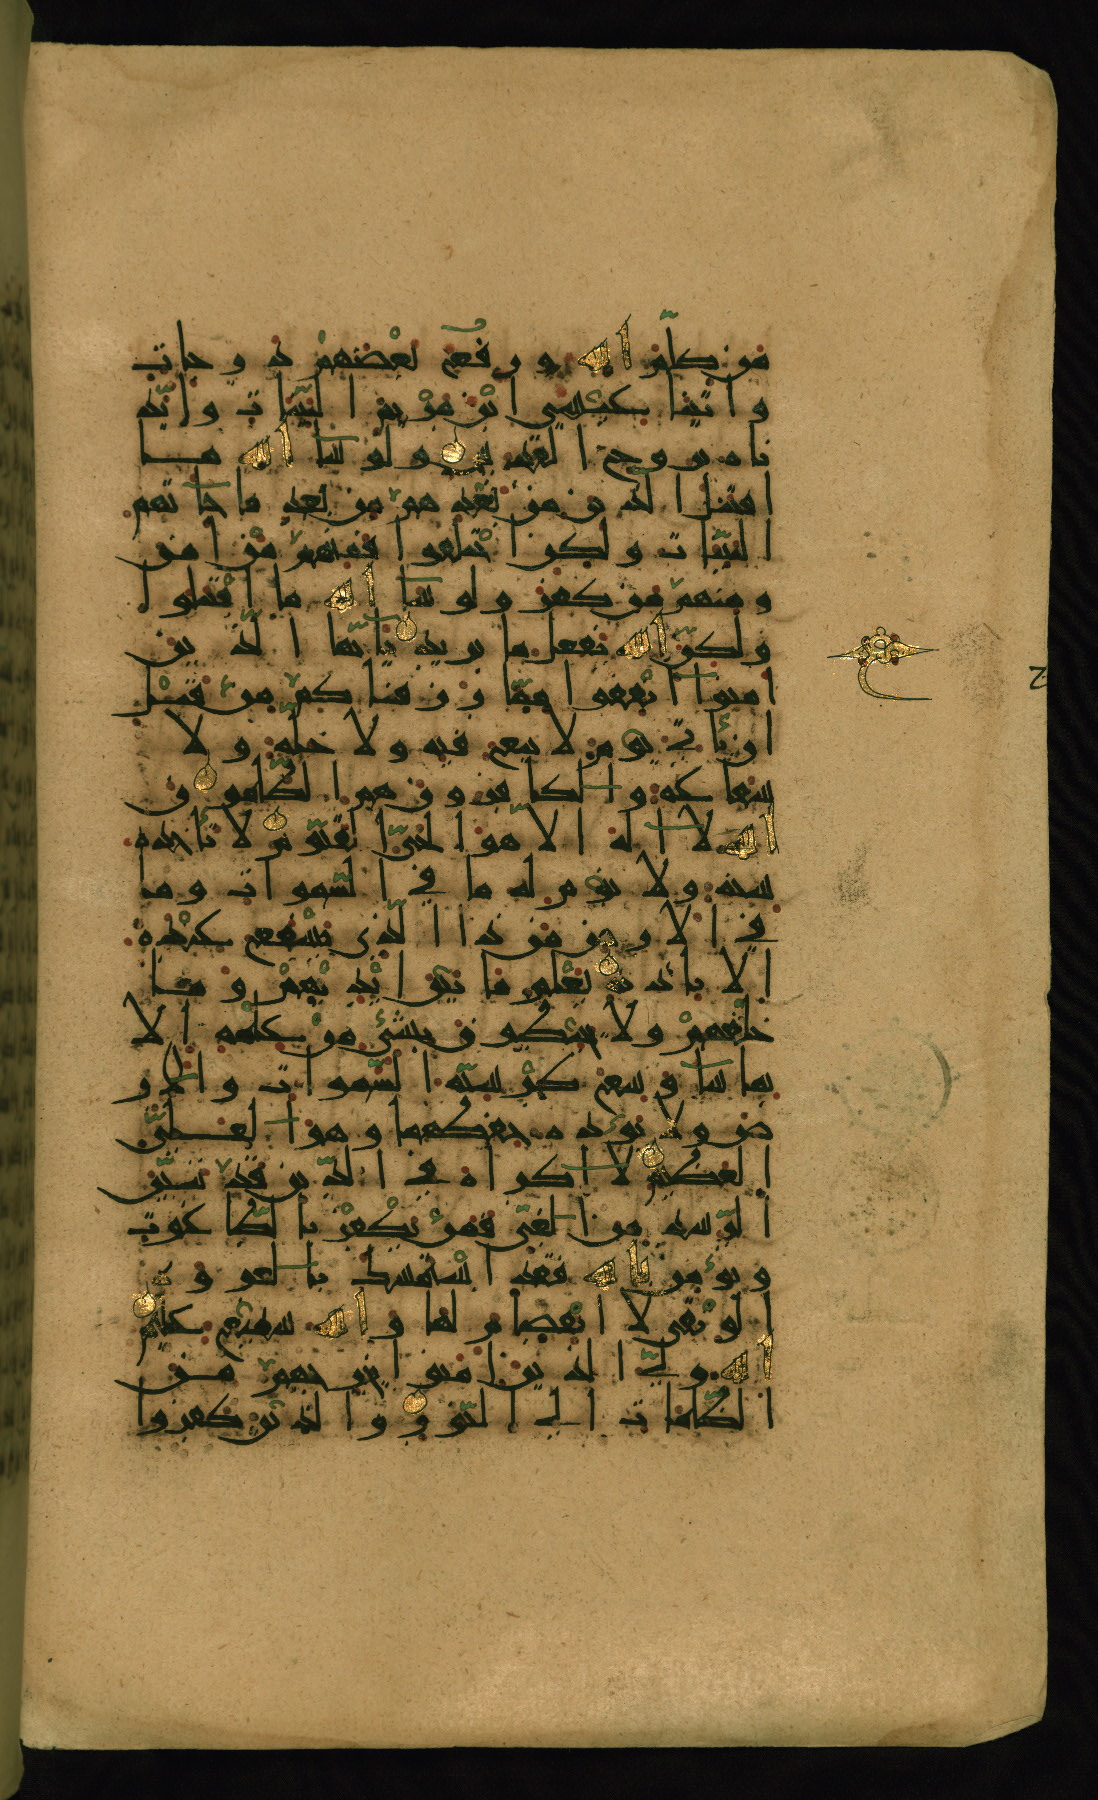 من كلم الله ورفع بعضهم درجات
واتينا عيسى ابن مريم البينات وايد
ناه بروح القدس ولو شا الله ما
اقتتل الذين من بعدهم من بعد ما جاتهم
البينات ولكن اختلفوا فمنهم من امن
ومنهم من كفر ولو شا الله ما اقتتلوا
ولكنّ الله يفعل ما يريد يايّها الذين
امنوا انفقوا ممّا رزقناكم من قبل
ان يأتي يوم لا بيع فيه ولا خلّة ولا
شفاعة والكافرون هم الظّالمون
الله لا اله الا هو الحيّ القيّوم لا تأخذه
سنة ولا نوم له ما في السّموات وما
في الارض من ذا الّذي يشفع عنده
الا بأذنه يعلم ما بين ايديهم وما
خلفهم ولا يحيطون بشئ من علمه الا
بما شا وسع كرسيّه السّموات والار
ض ولا يؤده حفظهما وهو العليّ
العظيم لا اكراه في الدّين قد تبيّن
الرّشد من الغيّ فمن يكفر بالطّاغوت
ويؤمن بالله فقد استمسك بالعروة
الوثقى لا انفصام لها والله سميع عليم
الله وليّ الذين امنوا يخرجهم من
الظّلمات الى النّور والذين كفروا